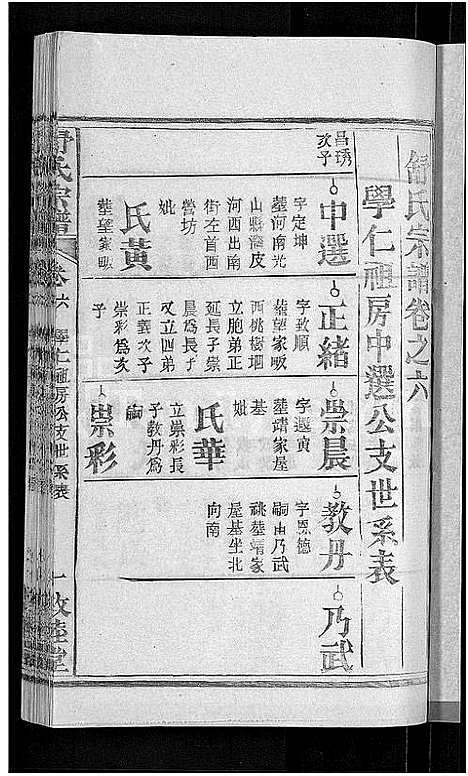 舒氏宗譜卷之六
學仁祖房中選公支世系表
昌琇
次子
中選
字定坤
塟河南光
山縣潑皮
河西出南
街左首西
營坊
妣
氏黃
塟望家畈
正緒
字致順
塟望家畈
西桃樹堌
立胞弟正
延長子崇
晨為長子
又立四弟
正義次子
崇彩為次
子
崇晨
字遐寅
塟靖家屋
基
妣
氏華
立崇彩長
子教丹為
嗣
崇彩
教丹
字恩德
嗣由乃武
祧塟靖家
屋基坐北
向南
乃武
舒氏宗譜
卷六
學仁祖房公支世系表
一
敦睦堂